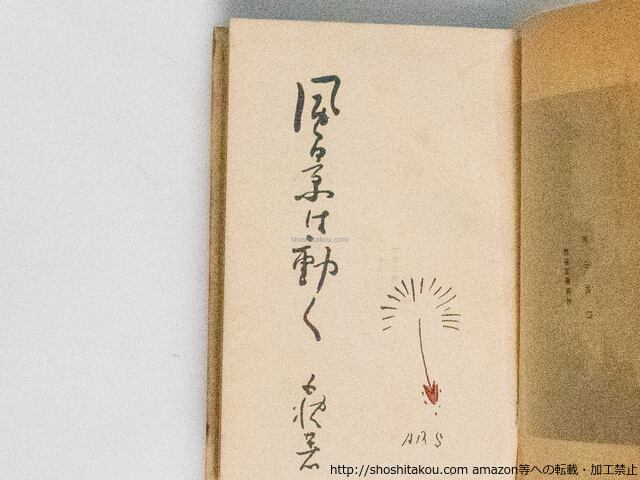 風景は動く
白秋著
ARS
shoshitakou.com
http://shoshitakou.com amazon等への転載・加工禁止